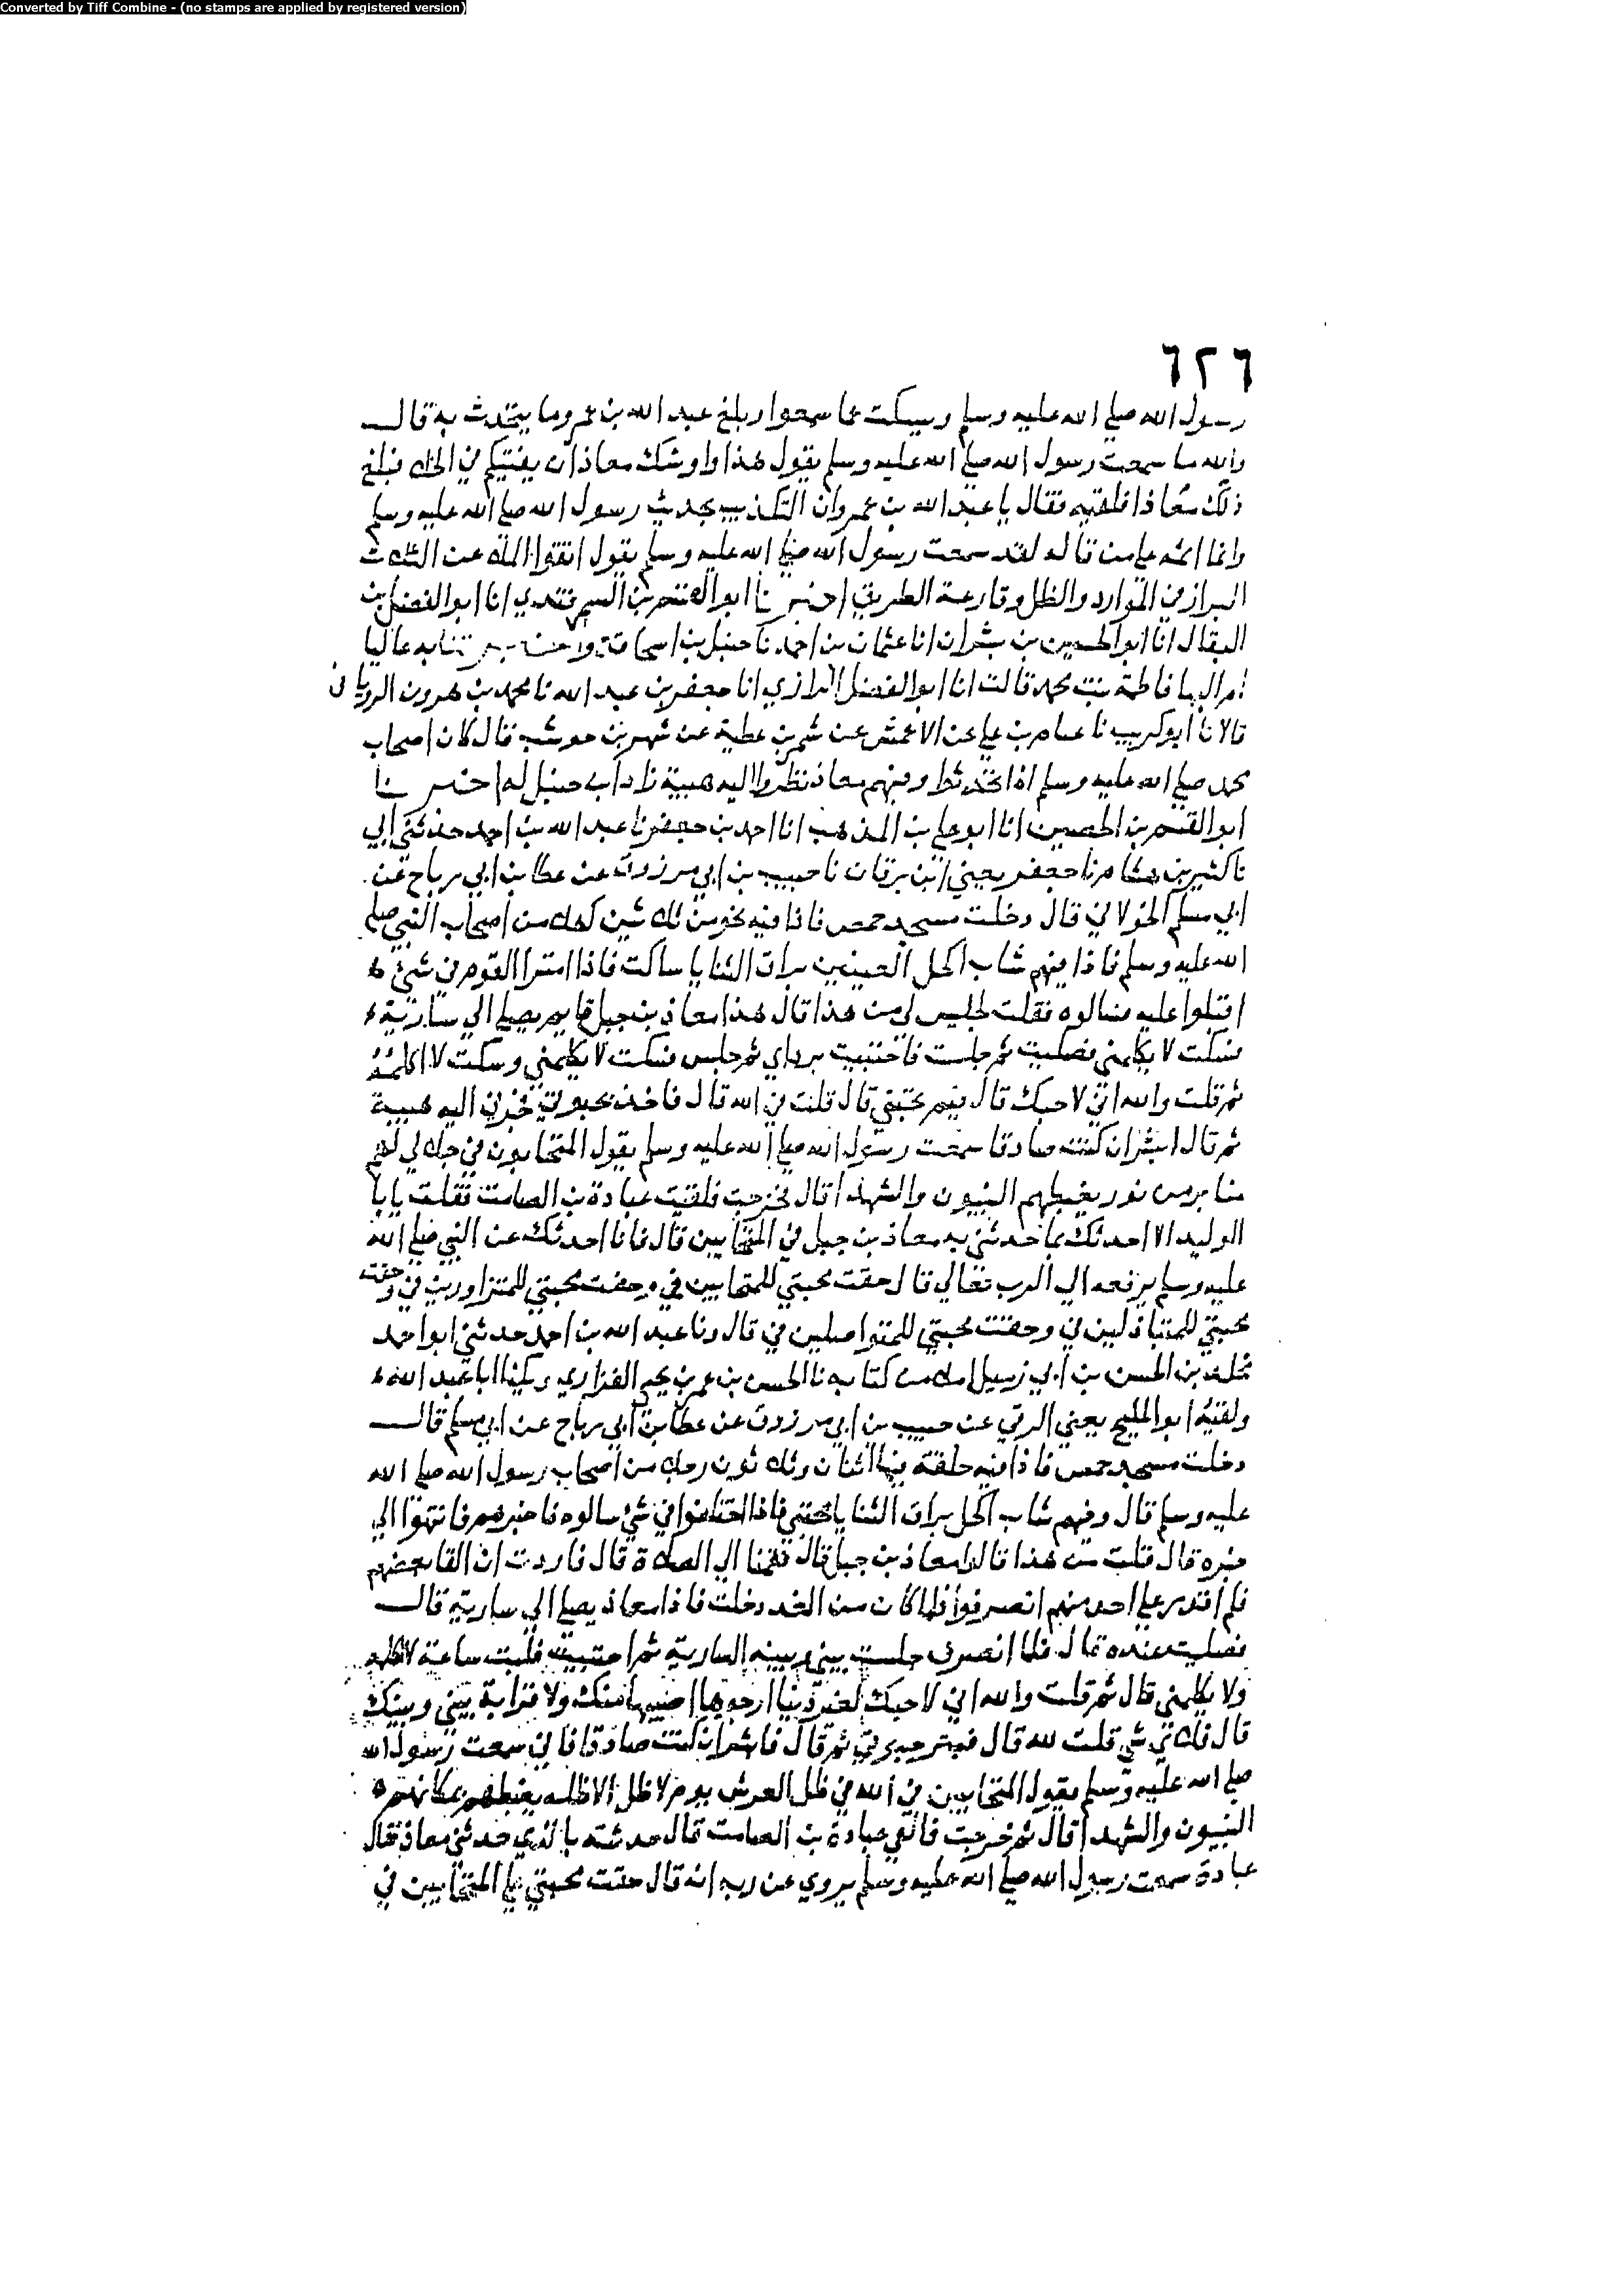 Converted by Tiff Combine - (no stamps are applied by registered version)
٦٢٦
رسول الله صلى الله عليه وسلم ويسكت عما سمعوا وبلغ عبد الله بن عمرو ما يتحدث به قال
والله ما سمعت رسول الله صلى الله عليه وسلم يقول هذا واوشك معاذ ان يفتنكم في الخلاء فبلغ
ذلك معاذا فلقيه فقال يا عبد الله بن عمرو ان التكذيب بحديث رسول الله صلى الله عليه وسلم
وانما اثمه على من قاله لقد سمعت رسول الله صلى الله عليه وسلم يقول اتقوا الملاعن الثلاث
البراز في الموارد والظل وقارعة الطريق اخبرنا ابو القسم بن السمرقندي انا ابو الفضل بن
البقال انا ابو الحسين بن بشران انا عثمان بن احمد نا حنبل بن اسحاق عاليا
ام البها فاطمة بنت محمد قالت انا ابو الفضل الرازي انا جعفر بن عبد الله نا محمد بن هرون الروياني
قالا نا ابو كريب نا عثام بن علي عن الاعمش عن شمر بن عطية عن شهر بن حوشب قال كان اصحاب
محمد صلى الله عليه وسلم اذا تحدثوا وفيهم معاذ نظروا اليه هيبة زاد حنبل له اخبرنا
ابو القسم بن الحصين انا ابو علي بن المذهب انا احمد بن جعفر نا عبد الله بن احمد حدثني ابي
نا كثير بن هشام نا جعفر يعني ابن برقان نا حبيب بن ابي مرزوق عن عطا بن ابي رباح عن
ابي مسلم الخولاني قال دخلت مسجد حمص فاذا فيه نحو من ثلاثين كهلا من اصحاب النبي صلى
الله عليه وسلم فاذا فيهم شاب اكحل العينين براق الثنايا ساكت فاذا امترا القوم في شيء
اقبلوا عليه فسالوه فقلت لجليس لي من هذا قال هذا معاذ بن جبل قائم يصلي الي سارية
فسكت لا يكلمني فصليت ثم جلست فاحتبيت برداي ثم جلس فسكت لا يكلمني وسكت لا اكلمه
ثم قلت والله اني لاحبك قال فيم تحبني قال قلت في الله قال فاخذ بحبوتي فجرني اليه هيبة
ثم قال ابشر ان كنت صادقا سمعت رسول الله صلى الله عليه وسلم يقول المتحابون في جلالي لهم
منابر من نور يغبطهم النبيون والشهدا قال فخرجت فلقيت عبادة بن الصامت فقلت يا با
الوليد الا احدثك بما حدثني به معاذ بن جبل في المتحابين قال فانا احدثك عن النبي صلى الله
عليه وسلم يرفعه الي الرب تعالي قال حقت محبتي للمتحابين في وحقت محبتي للمتزاورين في وحقت
محبتي للمتباذلين في وحقت محبتي للمتواصلين في قال ونا عبد الله بن احمد حدثني ابو احمد
مخلد بن الحسن بن ابي زميل املاء من كتابه نا الحسن بن عمر بن يحيى الفزاري ويكنا ابا عبد الله
ولقبه ابو المليح يعني الرقي عن حبيب بن ابي مرزوق عن عطا بن ابي رباح عن ابي مسلم قال
دخلت مسجد حمص فاذا فيه حلقة فيها اثنان وثلاثون رجلا من اصحاب رسول الله صلى الله
عليه وسلم قال وفيهم شاب اكحل براق الثنايا محتبي فاذا اختلفوا في شيء سالوه فاخبرهم فانتهوا الي
خبره قال قلت من هذا قالوا معاذ بن جبل قال فقمنا الي الصلاة قال فاردت ان القا بعضهم
فلم اقدر على احد منهم انصرفوا فلما كان من الغد دخلت فاذا معاذ يصلي الي سارية قال
فصليت عنده قال فلما انصرف جلست بيني وبينه السارية ثم احتبيت فلبثت ساعة لا اكلمه
ولا يكلمني قال ثم قلت والله اني لاحبك لغير دنيا ارجوها اصيبها منك ولا قرابة بيني وبينك
قال فلاي شي قلت لله قال فنثر حبوتي ثم قال فابشر ان كنت صادقا فاني سمعت رسول الله
صلى الله عليه وسلم يقول المتحابين في الله في ظل العرش يوم لا ظل الا ظله يغبطهم بمكانهم
النبيون والشهدا قال ثم خرجت فالقي عبادة بن الصامت قال حدثته بالذي حدثني معاذ فقال
عبادة سمعت رسول الله صلى الله عليه وسلم يروي عن ربه انه قال حقت محبتي علي المتحابين في